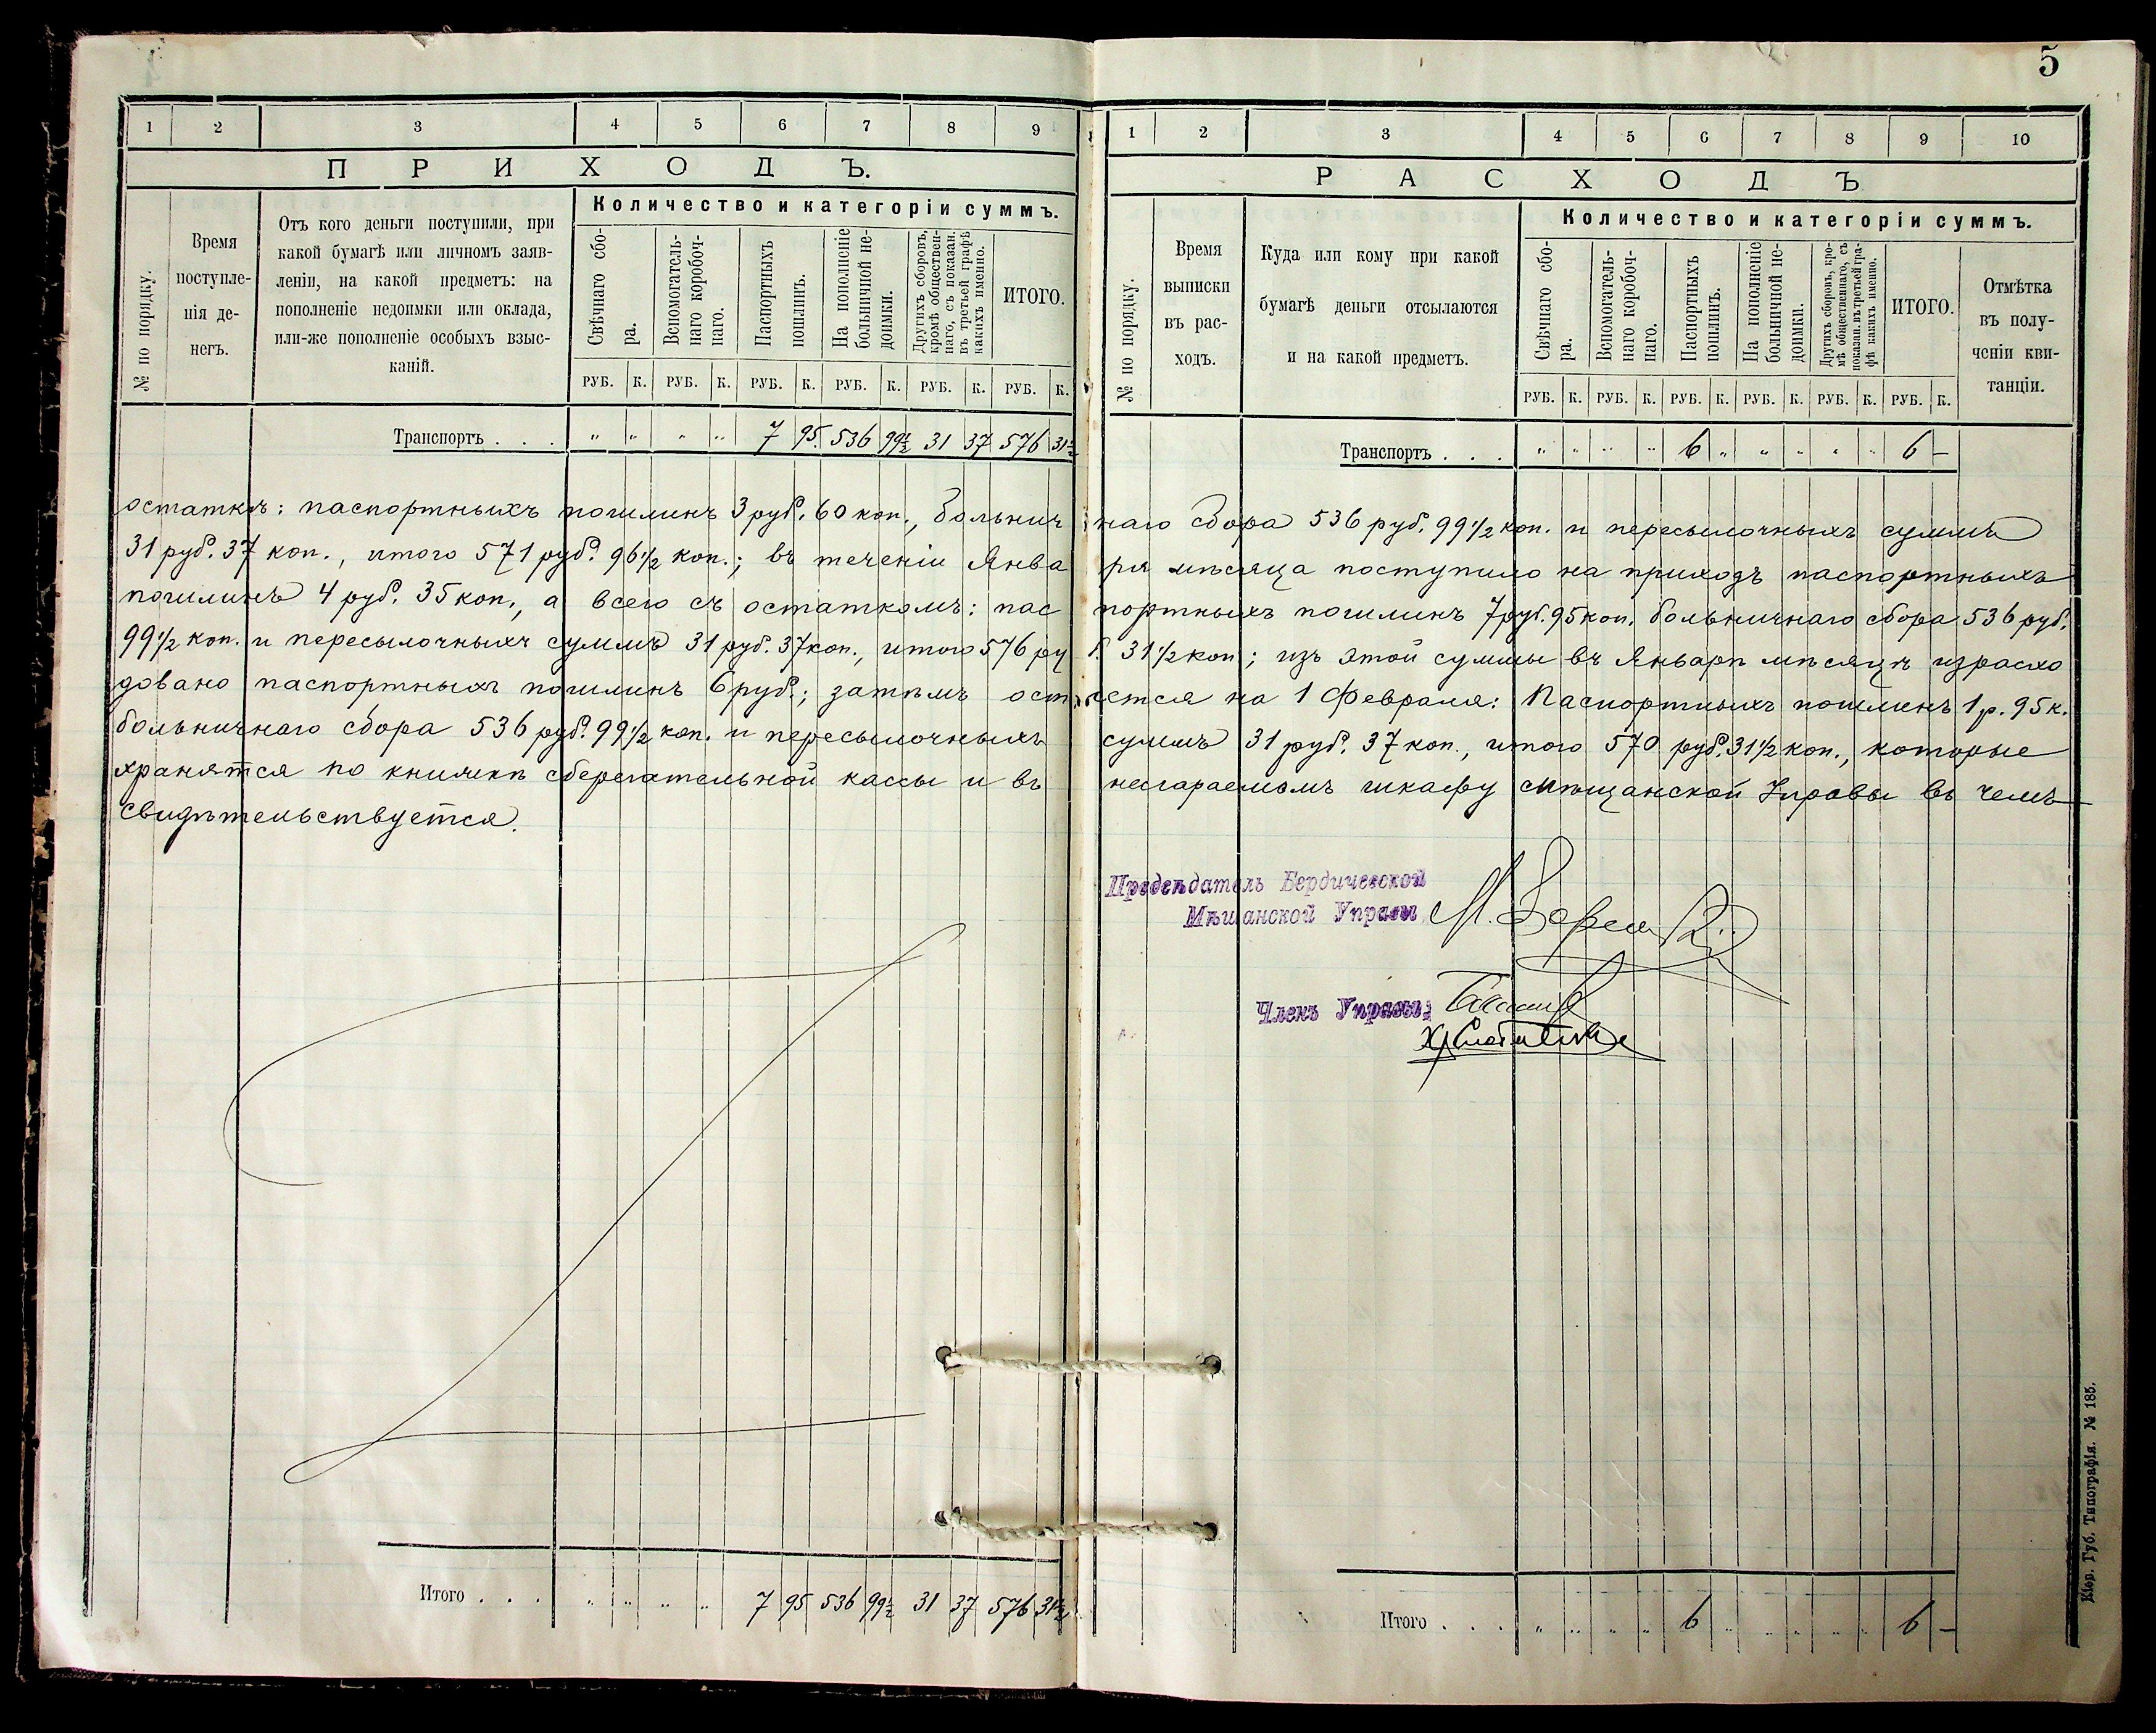 5
1 2 3 4 5 6 7 8 9
ПРИХОДЪ.
№ по порядку.
Время
поступле-
нія де-
негъ.
Отъ кого деньги поступили, при
какой бумагѣ или личномъ заяв-
леніи, на какой предметъ: на
пополненіе недоимки или оклада,
или-же пополненіе особыхъ взыс-
каній.
Количество и категоріи суммъ.
Свѣчнаго сбо-
ра.
Вспомогатель-
наго коробоч-
наго.
Паспортныхъ
пошлинъ.
На пополненіе
больничной не-
доимки.
Другихъ сборовъ,
кромѣ обществен-
наго, съ показан.
въ третьей графѣ
какихъ именно.
ИТОГО.
РУБ. К. РУБ. К. РУБ. К. РУБ. К. РУБ. К. РУБ. К.
Транспортъ . . . " " " " 7 95. 536 99½ 31 37 576 31½
1 2 3 4 5 6 7 8 9 10
РАСХОДЪ
№ по порядку.
Время
выписки
въ рас-
ходъ.
Куда или кому при какой
бумагѣ деньги отсылаются
и на какой предметъ.
Количество и категоріи суммъ.
Свѣчнаго сбо-
ра.
Вспомогатель-
наго коробоч-
наго.
Паспортныхъ
пошлинъ.
На пополненіе
больничной не-
доимки.
Другихъ сборовъ, кро-
мѣ общественнаго, съ
показан. въ третьей гра-
фѣ какихъ именно.
ИТОГО.
Отмѣтка
въ полу-
ченіи кви-
танціи.
РУБ. К. РУБ. К. РУБ. К. РУБ. К. РУБ. К. РУБ. К.
Транспортъ . . . " " " " 6 " " " " " 6 –
остаткѣ: паспортныхъ пошлинъ 3 руб. 60 коп., больничнаго сбора 536 руб. 99 1/2 коп. и пересылочныхъ суммъ
31 руб. 37 коп., итого 571 руб. 96 1/2 коп.; въ теченіи Января мѣсяца поступило на приходъ паспортныхъ
пошлинъ 4 руб. 35 коп., а всего съ остаткомъ: паспортныхъ пошлинъ 7 руб. 95 коп. больничнаго сбора 536 руб.
99 1/2 коп. и пересылочныхъ суммъ 31 руб. 37 коп., итого 576 руб. 31 1/2 коп; изъ этой суммы въ Январѣ мѣсяцѣ израсхо
довано паспортныхъ пошлинъ 6 руб.; затѣмъ остается на 1 Февраля: Паспортныхъ пошлинъ 1 р. 95 к.
больничнаго сбора 536 руб. 99 1/2 коп. и пересылочныхъ суммъ 31 руб. 37 коп., итого 570 руб. 31 1/2 коп., которые
хранятся по книжкѣ сберегательной кассы и въ несгараемомъ шкафу Мѣщанской Управы въ чемъ
свидѣтельствуется.
Предсѣдатель Бердичевской
Мѣщанской Управы
Членъ Управы:
Итого . . . " " " " 7 95 536 99½ 31 37 576 31½
Итого . . . " " " " 6 " " " " " 6 –
Кіев. Губ. Типографія. № 185.